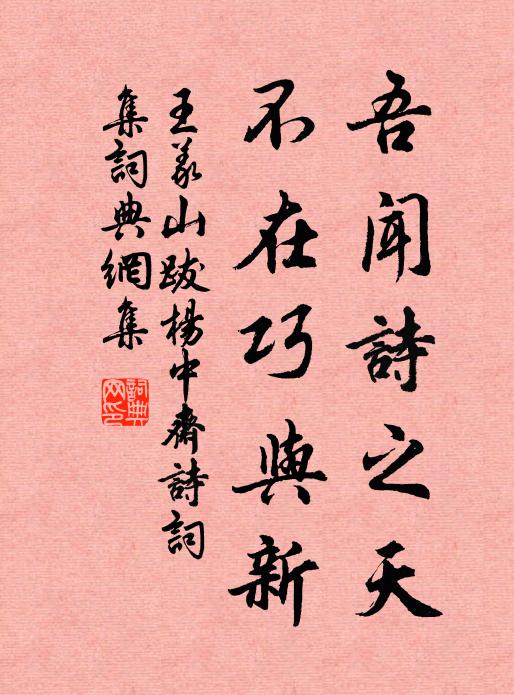 吾聞詩之天
不在巧與新
王義山跋楊中齋詩詞
集詞典網集
詞典网印